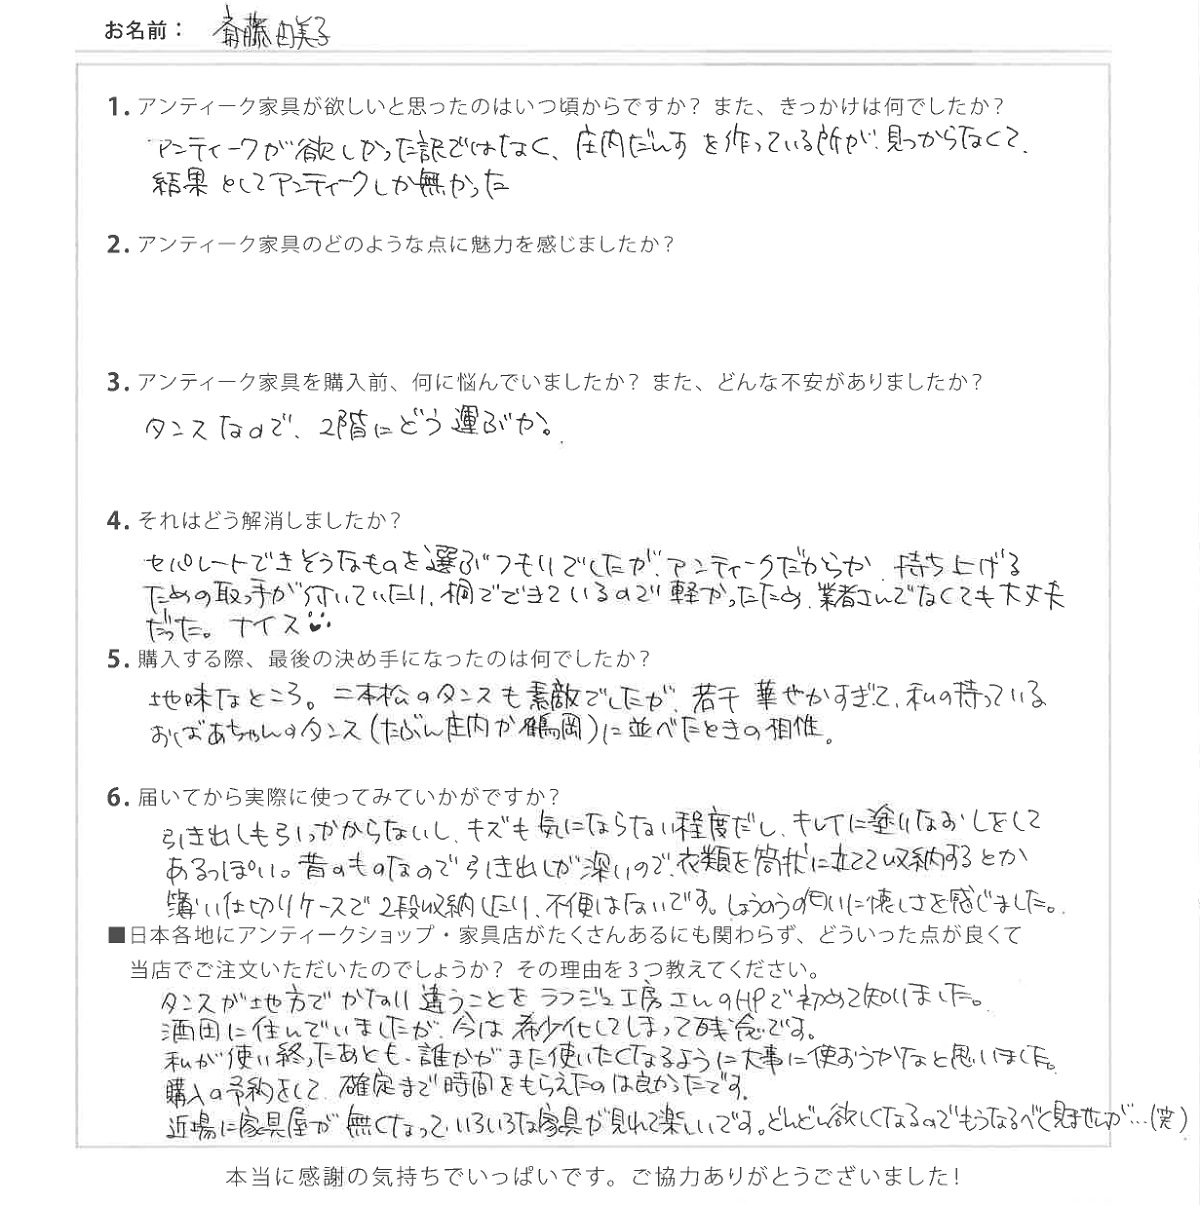 お名前： 斎藤由美子
1. アンティーク家具が欲しいと思ったのはいつ頃からですか？ また、きっかけは何でしたか？
アンティークが欲しかった訳ではなく、庄内だんすを作っている所が見つからなくて、
結果としてアンティークしか無かった
2. アンティーク家具のどのような点に魅力を感じましたか？
3. アンティーク家具を購入前、何に悩んでいましたか？ また、どんな不安がありましたか？
タンスなので、2階にどう運ぶか。
4. それはどう解消しましたか？
セパレートできそうなものを選ぶつもりでしたが、アンティークだからか、持ち上げる
ための取っ手が付いていたり、桐でできているので軽かったため、業者さんでなくても大丈夫
だった。ナイス
5. 購入する際、最後の決め手になったのは何でしたか？
地味なところ。二本松のタンスも素敵でしたが、若干華やかすぎて、私の持っている
おばあちゃんのタンス(たぶん庄内か鶴岡)に並べたときの相性。
6. 届いてから実際に使ってみていかがですか？
引き出しも引っかからないし、キズも気にならない程度だし、キレイに塗りなおしをして
あるっぽい。昔のものなので引き出しが深いので、衣類を筒状に立てて収納するとか
薄い仕切りケースで2段収納したり、不便はないです。しょうのうの匂いに懐しさを感じました。
■日本各地にアンティークショップ・家具店がたくさんあるにも関わらず、どういった点が良くて
当店でご注文いただいたのでしょうか？ その理由を３つ教えてください。
タンスが地方でかなり違うことをラフジュ工房さんのHPで初めて知りました。
酒田に住んでいましたが、今は希少化してしまって残念です。
私が使い終ったあとも、誰かがまた使いたくなるように大事に使おうかなと思いました。
購入の予約をして、確定まで時間をもらえたのは良かったです。
近場に家具屋が無くなって、いろいろな家具が見れて楽しいです。どんどん欲しくなるのでもうなるべく見ませんが…(笑)
本当に感謝の気持ちでいっぱいです。ご協力ありがとうございました！